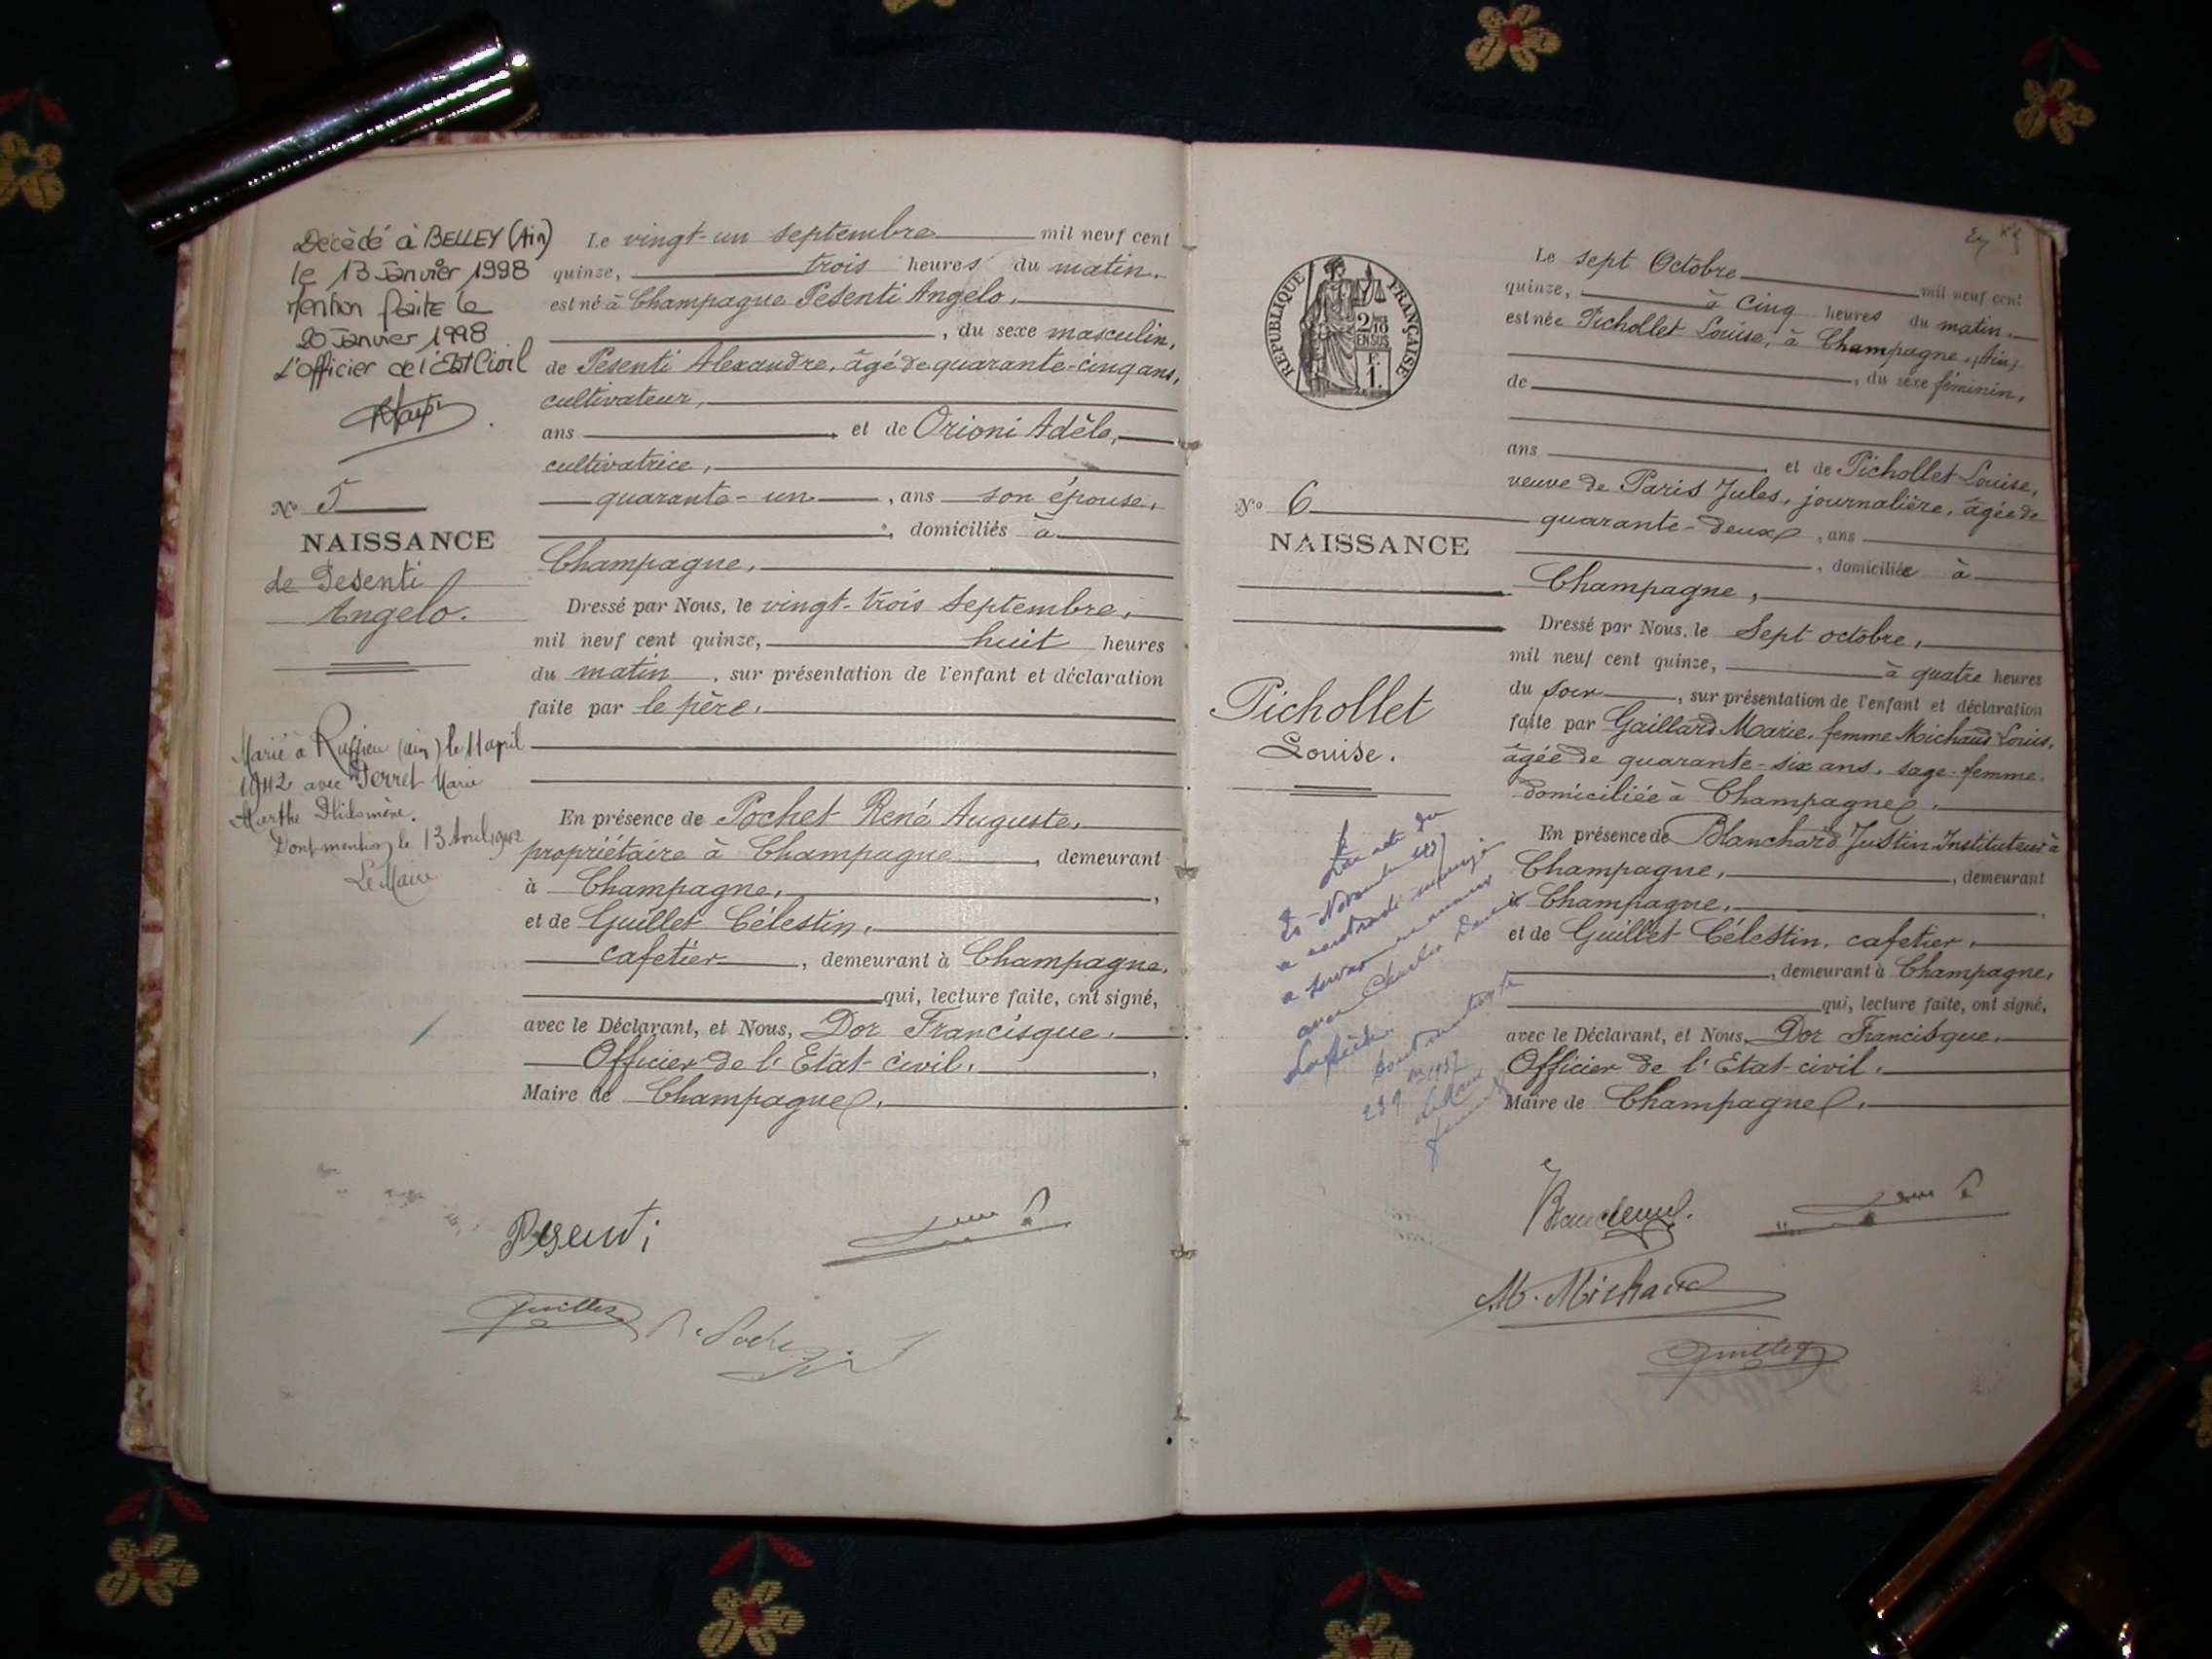 Décédé à BELLEY (Ain)
le 13 Janvier 1998
Mention faite le
20 Janvier 1998
L'officier de l'Etat Civil
No 5
NAISSANCE
de Pesenti
Angelo.
Marié à Ruffieu (ain) le 11 april
1942 avec Perret Marie
Marthe Philomène.
Dont mention, le 13 Avril 1942
Le Maire
Le vingt-un septembre mil neuf cent
quinze, trois heures du matin.
est né à Champagne Pesenti Angelo,
, du sexe masculin,
de Pesenti Alexandre, âgé de quarante-cinq ans,
cultivateur,
ans et de Orioni Adèle,
cultivatrice,
quarante-un , ans son épouse,
, domiciliés à
Champagne,
Dressé par Nous, le vingt-trois Septembre,
mil neuf cent quinze, huit heures
du matin , sur présentation de l'enfant et déclaration
faite par le père.
En présence de Pochet René Auguste,
propriétaire à Champagne , demeurant
à Champagne,
et de Guillet Célestin,
cafetier , demeurant à Champagne,
qui, lecture faite, ont signé,
avec le Déclarant, et Nous, Dor Francisque.
Officier de l'Etat-civil,
Maire de Champagne.
Pesenti
Guillet
RÉPUBLIQUE FRANÇAISE
2/10
EN SUS
F.
1.
No 6
NAISSANCE
Pichollet
Louise.
Le sept Octobre mil neuf cent
quinze, à cinq heures du matin.
est née Pichollet Louise, à Champagne, (Ain)
de , du sexe féminin,
ans et de Pichollet Louise,
veuve de Paris Jules, journalière, âgée de
quarante-deux , ans
, domiciliée à
Champagne,
Dressé par Nous, le Sept octobre,
mil neuf cent quinze, à quatre heures
du soir , sur présentation de l'enfant et déclaration
faite par Gaillard Marie, femme Michaud Louis,
âgée de quarante-six ans, sage-femme
domiciliée à Champagne.
En présence de Blanchard Justin Instituteur à
Champagne, , demeurant
à Champagne,
et de Guillet Célestin, cafetier,
, demeurant à Champagne,
qui, lecture faite, ont signé,
avec le Déclarant, et Nous, Dor Francisque,
Officier de l'Etat-civil,
Maire de Champagne.
M. Michaud
Guillet